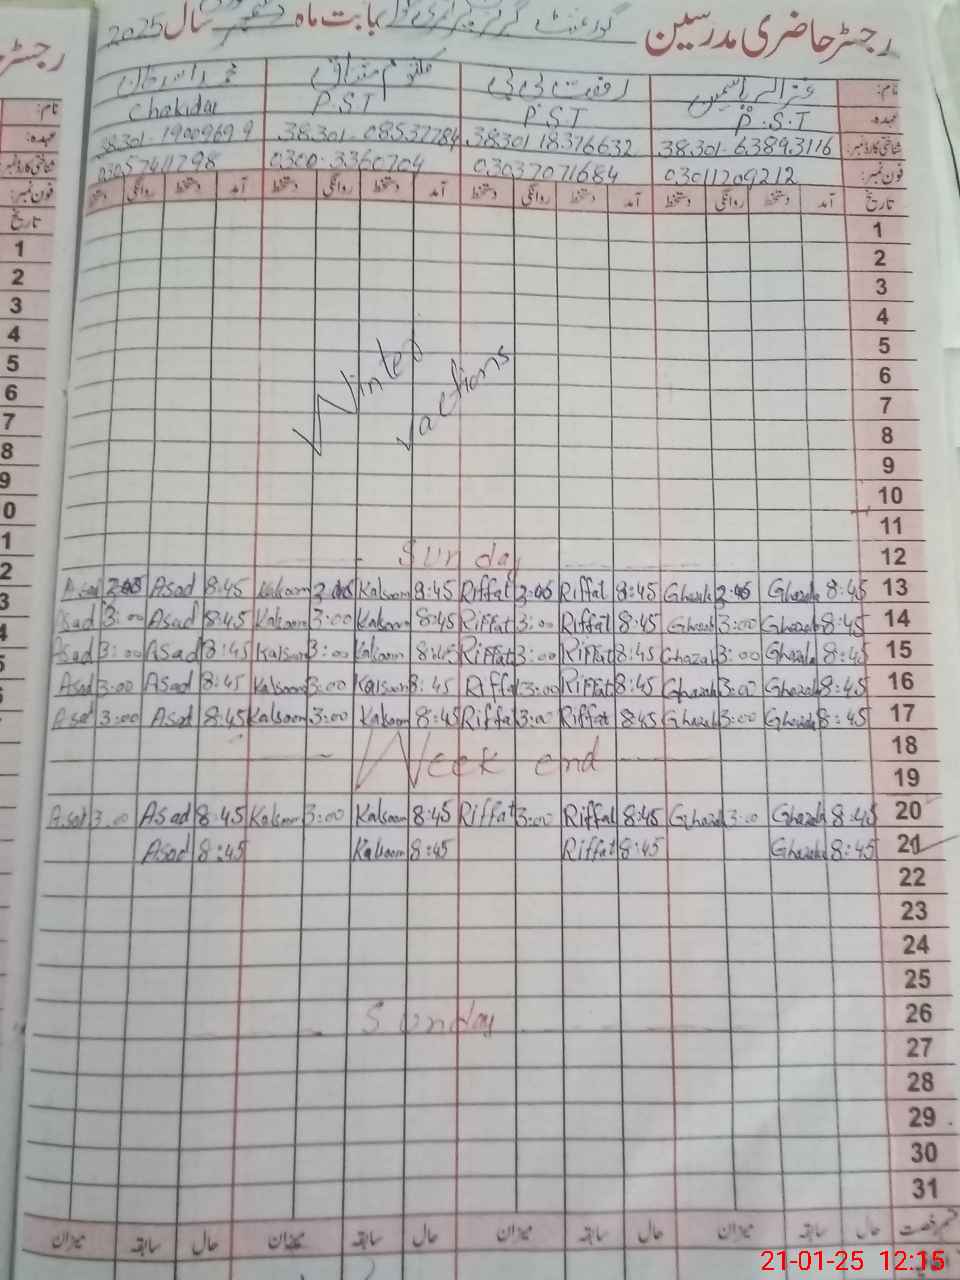 رجسٹر حاضری مدرسین گورنمنٹ گرلز پرائمری بابت ماہ سال 2025
نام: غزالہ یاسمین رفعت بی بی کلثوم مشتاق محمد اسد خان
عہدہ P.S.T P.S.T P.S.T Chakidar
شناختی کارڈ نمبر: 38301-63893116 38301 18376632 38301-08532784 38301-19009699
فون نمبر: 03011209212 03037071684 0300-3360704 03057411298
تاریخ آمد دستخط روانگی دستخط آمد دستخط روانگی دستخط آمد دستخط روانگی دستخط آمد دستخط روانگی دستخط
1
2
3
4
5
6
7
8
9
10
11
Winter
vactions
Sunday 12
Asad Asad 8:45 Kalsoom Kalsoom 8:45 Riffat Riffat 8:45 Ghazala Ghazala 8:45 13
Asad 3:00 Asad 8:45 Kalsoom 3:00 Kalsoom 8:45 Riffat 3:00 Riffat 8:45 Ghazala 3:00 Ghazala 8:45 14
Asad 3:00 Asad 8:45 Kalsoom 3:00 Kalsoom 8:45 Riffat 3:00 Riffat 8:45 Ghazala 3:00 Ghazala 8:45 15
Asad 3:00 Asad 8:45 Kalsoom 3:00 Kalsoom 8:45 Riffat 3:00 Riffat 8:45 Ghazala 3:00 Ghazala 8:45 16
Asad 3:00 Asad 8:45 Kalsoom 3:00 Kalsoom 8:45 Riffat 3:00 Riffat 8:45 Ghazala 3:00 Ghazala 8:45 17
18
Week end
19
Asad 3:00 Asad 8:45 Kalsoom 3:00 Kalsoom 8:45 Riffat 3:00 Riffat 8:45 Ghazala 3:00 Ghazala 8:45 20
Asad 8:45 Kalsoom 8:45 Riffat 8:45 Ghazala 8:45 21
22
23
24
25
Sunday 26
27
28
29
30
31
قسم رخصت حال سابقہ میزان حال سابقہ میزان حال سابقہ میزان حال سابقہ میزان
21-01-25 12:15